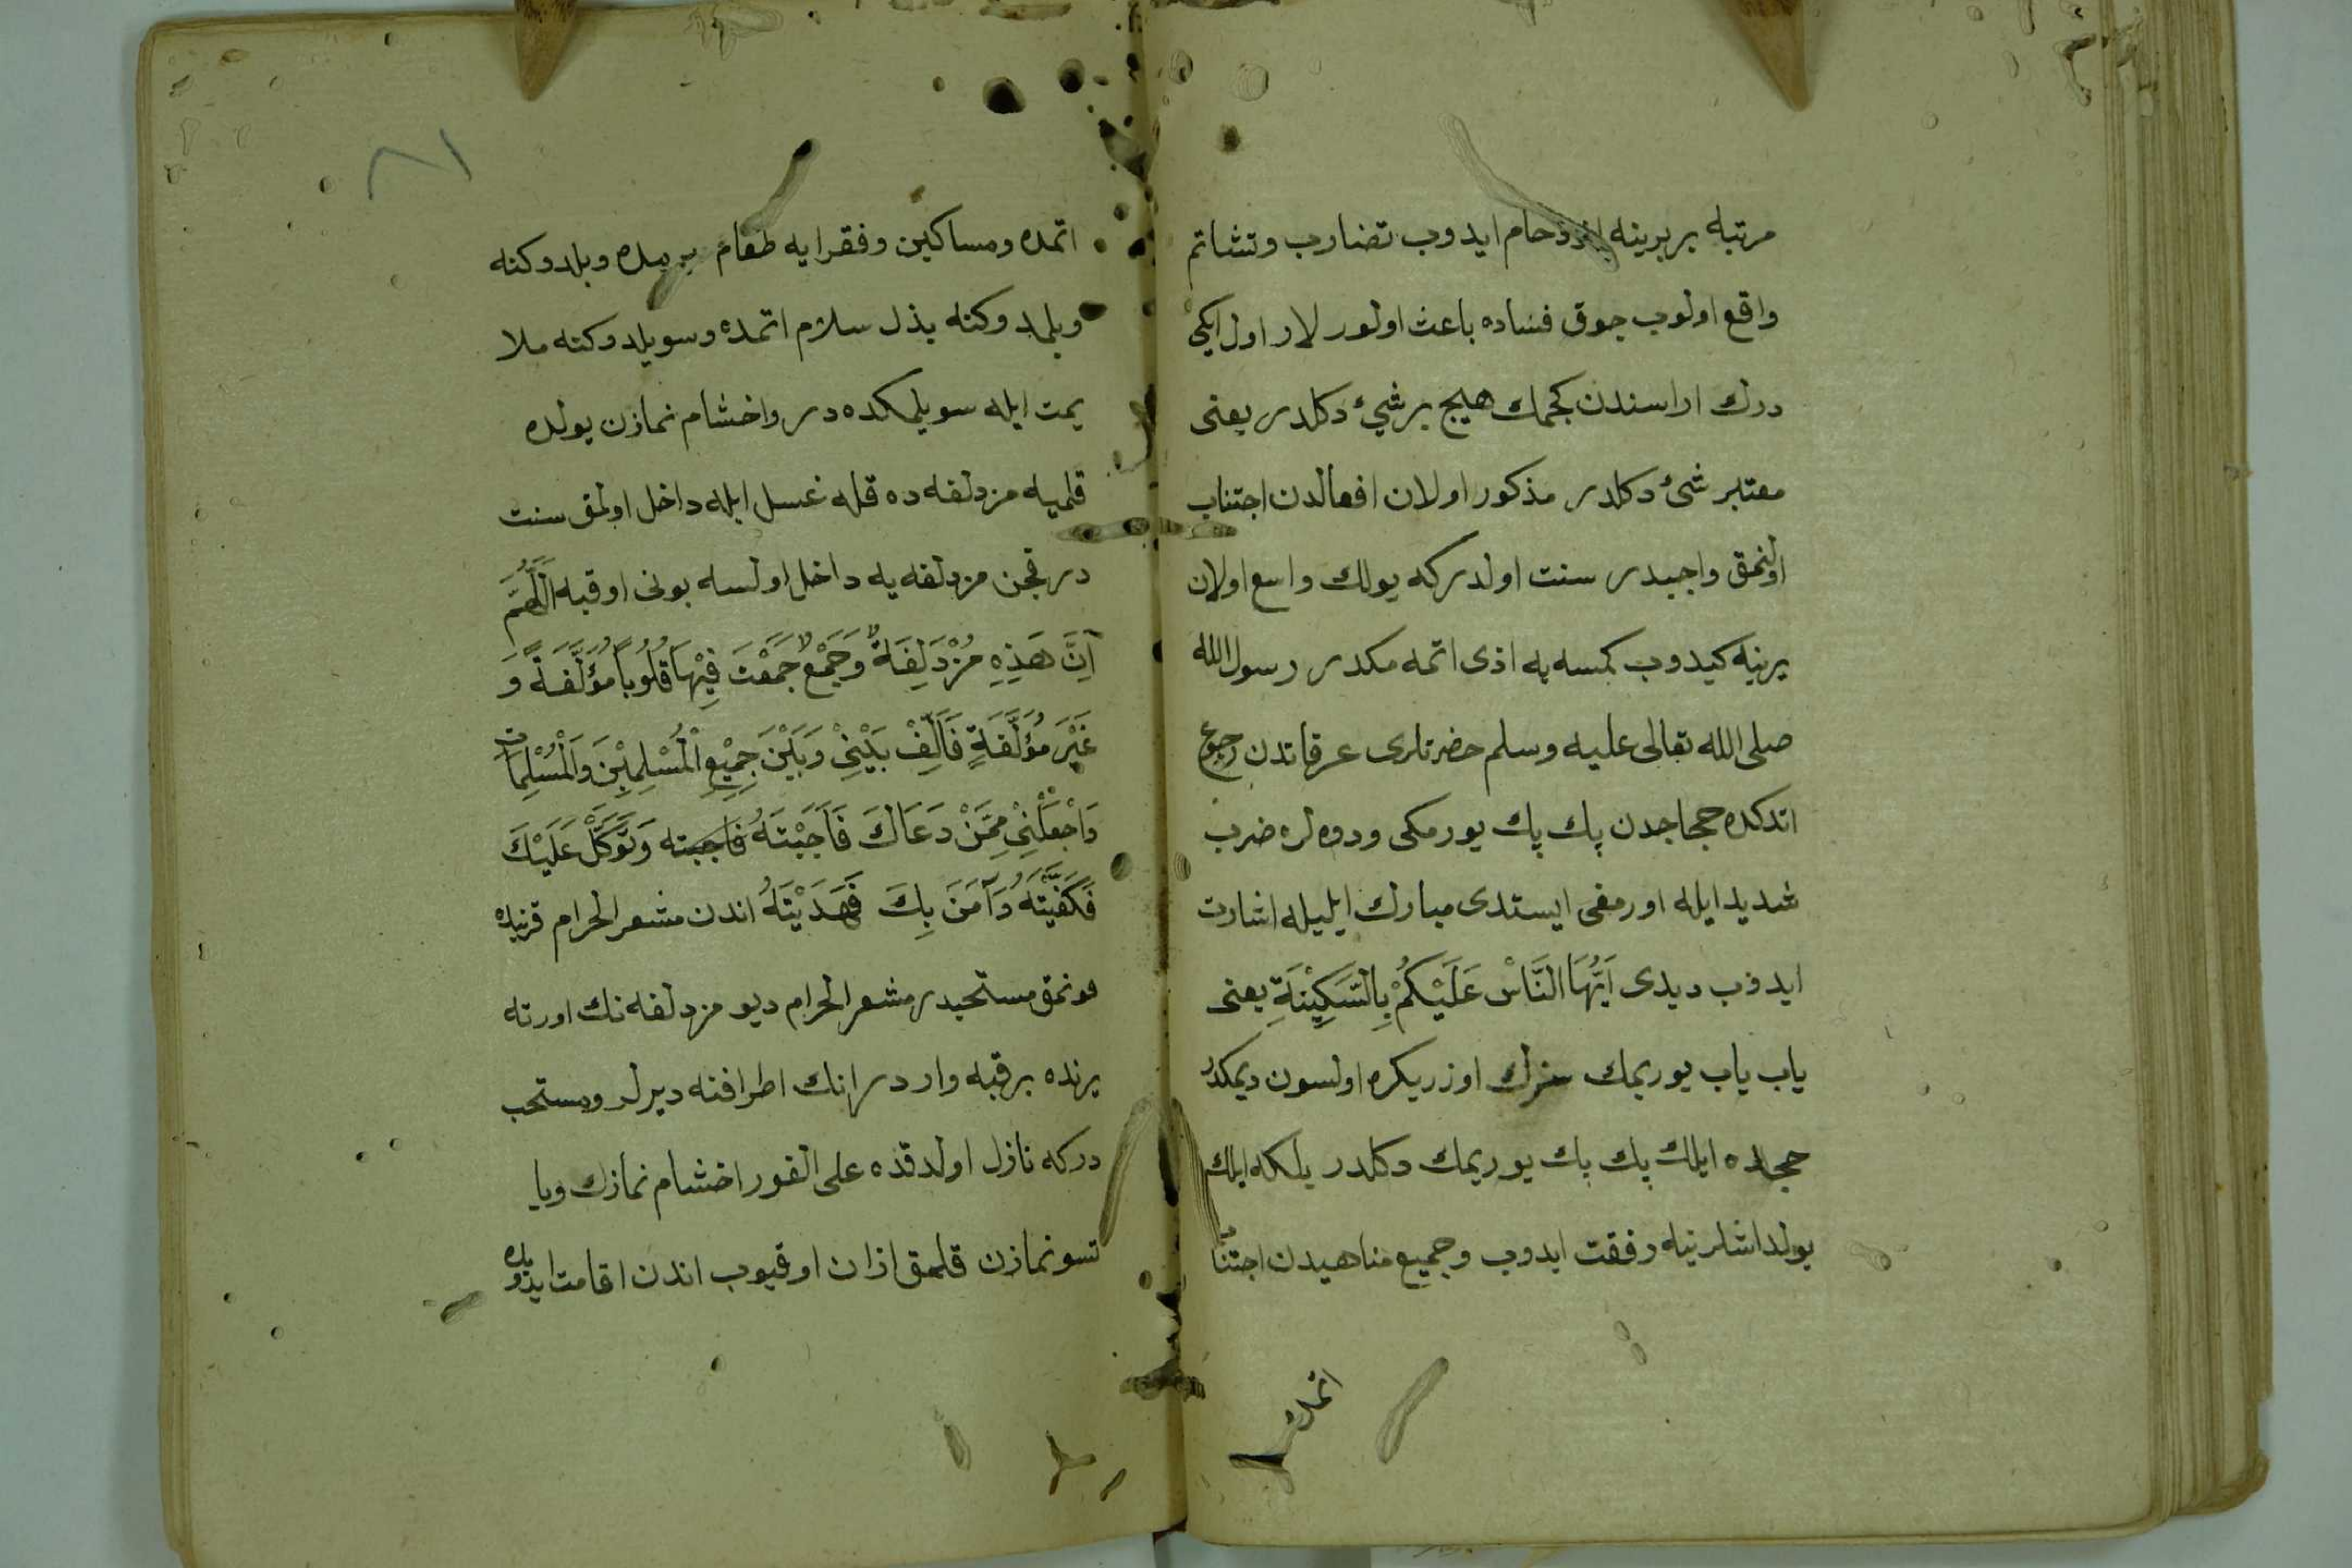 مرتبه بر برينه ازدحام ايدوب تضارب وتشاتم
واقع اولوب جوق فساده باعث اولور لار اول ايكى
درك اراسندن كجمك هيج بر شئ دكلدر يعنى
معتبر شئ دكلدر مذكور اولان افعالدن اجتناب
اولنمق واجبدر سنت اولدر كه يولك واسع اولان
يرينه كيدوب كمسه يه اذى اتمه مكدر رسول الله
صلى الله تعالى عليه وسلم حضرتلرى عرفاتدن رجوع
اتدكده حججاجدن پك پك يورمكى ودوه لره ضرب
شديد ايله اورمغى ايستدى مبارك ايليله اشارت
ايدوب ديدى اَيُّهَا النَّاسْ عَلَيْكُمْ بِالسَّكِيْنَةِ يعنى
ياب ياب يوريمك سزك اوزريكره اولسون ديمكدر
حجلده ايلك پك پك يوريمك دكلدر بلكه ايلك
يولداشلرينه رفقت ايدوب وجميع مناهيدن اجتناب
اتمكده
٨١
اتمده ومساكين وفقرايه طعام يرمده وبلدوكنه
وبلمدوكنه بذل سلام اتمده وسويلدوكنه ملا
يمت ايله سويلمكده در واخشام نمازن يولده
قلميه مزدلفه ده قله غسل ايله داخل اولمق سنت
در قچن مزدلفه يه داخل اولسه بونى اوقيه اَللّٰهُمَّ
اِنَّ هَذِهِ مُزْدَلِفَةٌ وَجَمْعٌ جَمَعْتَ فِيْهَا قُلُوبًا مُؤَلَّفَةً وَ
غَيْرَ مُؤَلَّفَةٍ فَاَلِّفْ بَيْنِيْ وَبَيْنَ جَمِيْعِ الْمُسْلِمِيْنَ وَالْمُسْلِمَاتِ
وَاجْعَلْنِيْ مِمَّنْ دَعَاكَ فَاَجَبْتَهُ فاجبته وَتَوَكَّلَ عَلَيْكَ
فَكَفَيْتَهُ وَآمَنَ بِكَ فَهَدَيْتَهُ اندن مشعر الحرام قربنده
قونمق مستحبدر مشعر الحرام ديو مزدلفه نك اورته
يرنده بر قبه وار در انك اطرافنه ديرلر ومستحب
در كه نازل اولدقده على الفور اخشام نمازك ويا
تسو نمازن قلمق اذان اوقيوب اندن اقامت ايدوب